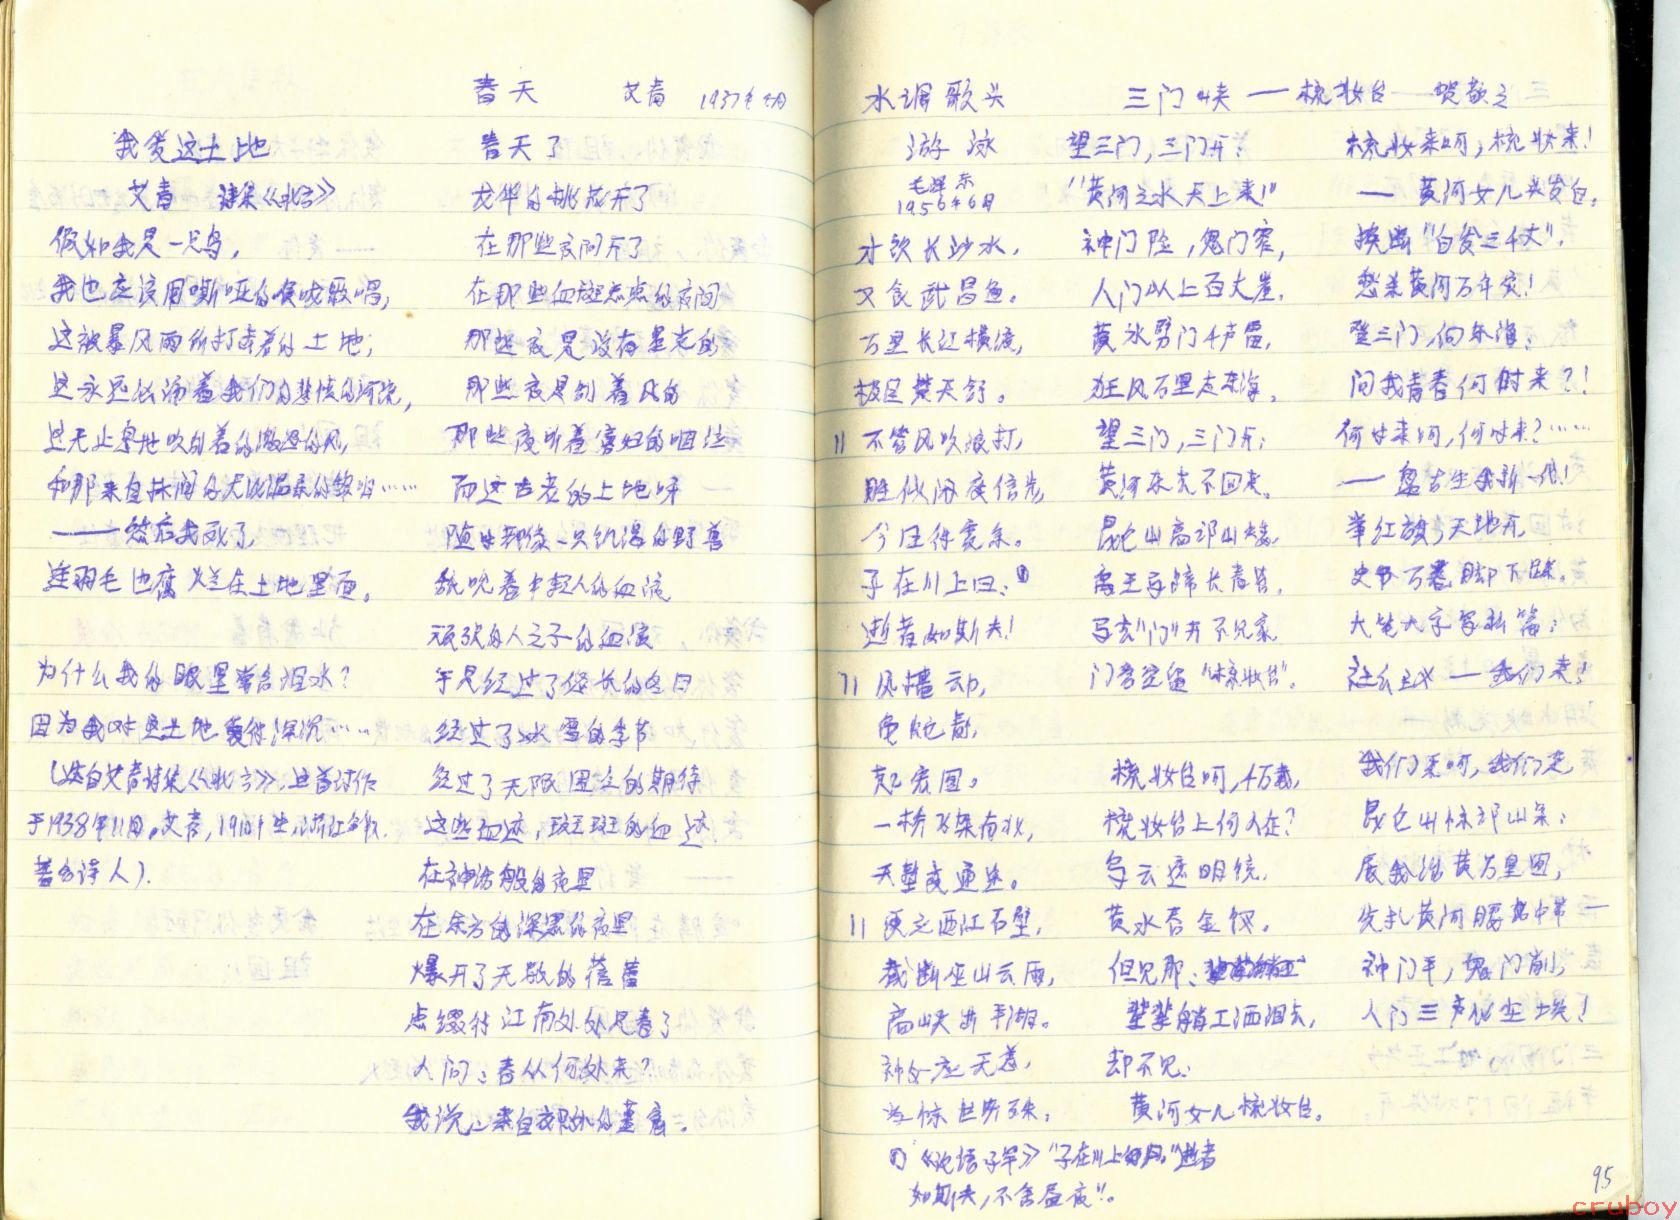 我爱这土地
艾青 诗集《北方》
假如我是一只鸟,
我也应该用嘶哑的喉咙歌唱,
这被暴风雨所打击着的土地;
这永远汹涌着我们的悲愤的河流,
这无止息地吹刮着的激怒的风,
和那来自林间的无比温柔的黎明……
——然后我死了,
连羽毛也腐烂在土地里面。
为什么我的眼里常含泪水?
因为我对这土地爱得深沉……
(选自艾青诗集《北方》,这首诗作
于1938年11月。艾青,1910年生,浙江金华人.
著名诗人).
春天 艾青 1937年4月
春天了
龙华的桃花开了
在那些夜间开了
在那些血斑点点的夜间
那些夜是没有星光的
那些夜是刮着风的
那些夜听着寡妇的咽泣
而这古老的土地呀
随时都像一只饥渴的野兽
舐吮着年轻人的血液
顽强的人之子的血液
于是经过了悠长的冬日
经过了冰雪的季节
经过了无限困乏的期待
这些血迹,斑斑的血迹
在神话般的夜里
在东方的深黑的夜里
爆开了无数的蓓蕾
点缀得江南处处是春了
人问:春从何处来?
我说:来自郊外的墓窟。
水调歌头
游泳
毛泽东
1956年6月
才饮长沙水,
又食武昌鱼。
万里长江横渡,
极目楚天舒。
不管风吹浪打,
胜似闲庭信步,
今日得宽余。
子在川上曰:①
逝者如斯夫!
风樯动,
龟蛇静,
起宏图。
一桥飞架南北,
天堑变通途。
更立西江石壁,
截断巫山云雨,
高峡出平湖。
神女应无恙,
当惊世界殊.
① 《论语子罕》"子在川上曰:"逝者
如斯夫,不舍昼夜"。
三门峡——梳妆台——贺敬之
望三门,三门开:
"黄河之水天上来!"
神门险,鬼门窄,
人门以上百丈崖.
黄水劈门千声雷,
狂风万里走东海。
望三门,三门开:
黄河东去不回来。
昆仑山高邙山矮,
禹王马蹄长青苔。
马去"门"开不见家
门旁空留"梳妆台".
梳妆台呵,千万载,
梳妆台上何人在?
乌云遮明镜,
黄水吞金钗。
但见那:
辈辈艄工洒泪去,
却不见:
黄河女儿梳妆台。
梳妆来呵,梳妆来!
——黄河女儿头发白。
挽断"白发三千丈",
愁杀黄河万年灾!
登三门,向东海:
问我青春何时来?!
何时来呵,何时来?……
——盘古生我新一代!
举红旗,天地开,
史书万卷脚下踩。
大笔大字写新篇:
社会主义——我们来!
我们来呵,我们来
昆仑山惊邙山呆:
展我治黄万里图,
先扎黄河腰中带——
神门平,鬼门削,
人门三声化尘埃!
95
cruboy